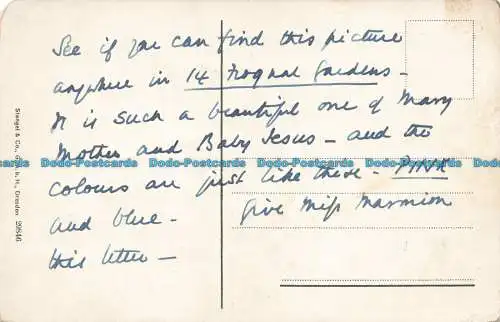 See if you can find this picture
anywhere in 14 Frognal Gardens -
It is such a beautiful one of Mary
Mother and Baby Jesus - and the
colours are just like these - PINK
and blue -
Give Miss Marmion
this letter -
Stengel & Co., G. m. b. H., Dresden 29846
Dodo-Postcards Dodo-Postcards Dodo-Postcards Dodo-Postcards Dodo-Postcards